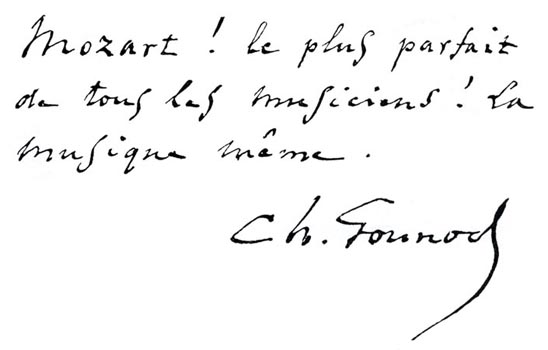 Mozart ! le plus parfait
de tous les musiciens ! La
musique même .
Ch. Gounod